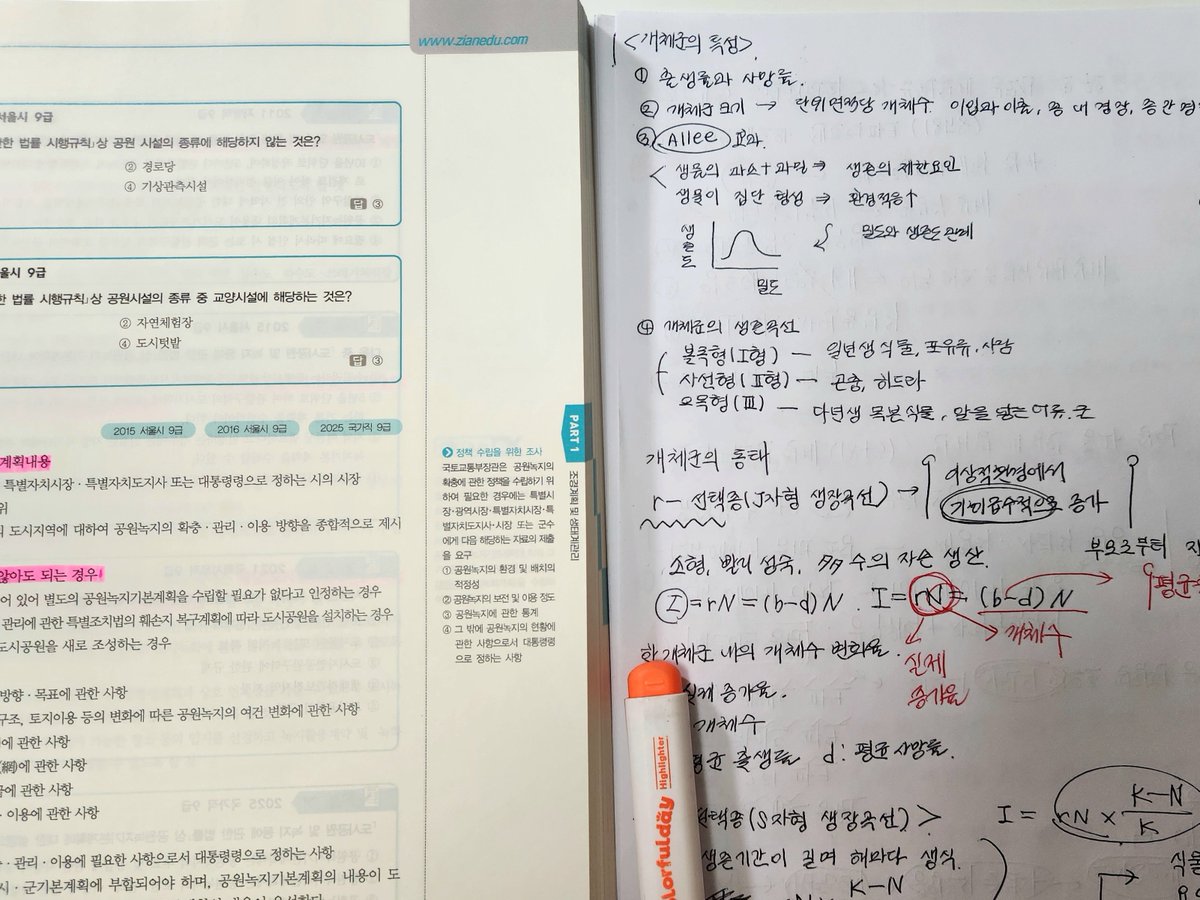 www.zianedu.com
서울시 9급
한 법률 시행규칙」상 공원 시설의 종류에 해당하지 않는 것은?
② 경로당
④ 기상관측시설
답 ③
서울시 9급
한 법률 시행규칙」상 공원시설의 종류 중 교양시설에 해당하는 것은?
② 자연체험장
④ 도시텃밭
답 ③
2015 서울시 9급 2016 서울시 9급 2025 국가직 9급
계획내용
특별자치시장·특별자치도지사 또는 대통령령으로 정하는 시의 시장
위
도시지역에 대하여 공원녹지의 확충·관리·이용 방향을 종합적으로 제시
않아도 되는 경우!
어 있어 별도의 공원녹지기본계획을 수립할 필요가 없다고 인정하는 경우
관리에 관한 특별조치법의 훼손지 복구계획에 따라 도시공원을 설치하는 경우
도시공원을 새로 조성하는 경우
방향·목표에 관한 사항
구조, 토지이용 등의 변화에 따른 공원녹지의 여건 변화에 관한 사항
에 관한 사항
(網)에 관한 사항
에 관한 사항
·이용에 관한 사항
·관리·이용에 필요한 사항으로서 대통령령으로 정하는 사항
시·군기본계획에 부합되어야 하며, 공원녹지기본계획의 내용이 도
정책 수립을 위한 조사
국토교통부장관은 공원녹지의
확충에 관한 정책을 수립하기 위
하여 필요한 경우에는 특별시
장·광역시장·특별자치시장·특
별자치도지사·시장 또는 군수
에게 다음 해당하는 자료의 제출
을 요구
① 공원녹지의 환경 및 배치의
적정성
② 공원녹지의 보전 및 이용 정도
③ 공원녹지에 관한 통계
④ 그 밖에 공원녹지의 현황에
관한 사항으로서 대통령령
으로 정하는 사항
PART 1
조경계획 및 생태계관리
<개체군의 특성>
① 출생률과 사망률.
② 개체군 크기 → 단위면적당 개체수 이입과 이출, 종 내 경쟁, 종간 경
③ Allee 효과.
생물의 과소+과밀 ⇒ 생존의 제한요인
생물이 집단 형성 ⇒ 환경적응↑
생존도
밀도와 생존도 관계
밀도
④ 개체군의 생존곡선
볼록형(I형) — 일년생 식물, 포유류, 사람
사선형(II형) — 곤충, 히드라
오목형(III) — 다년생 목본식물, 알을 낳는 어류, 굴
개체군의 동태
r—선택종(J자형 생장곡선) → 이상적환경에서
기하급수적으로 증가
소형, 빨리 성숙, 多수의 자손 생산.
부모로부터
I=rN=(b-d)N. I=rN=(b-d)N
평균
개체수
실제
증가율
한 개체군 내의 개체수 변화율.
실제 증가율.
개체수
평균 출생률 d: 평균사망률.
선택종(S자형 생장곡선)>
I = rN × K-N/K
생존기간이 길며 해마다 생식.
식물
K-N
colorfulday
Highlighter